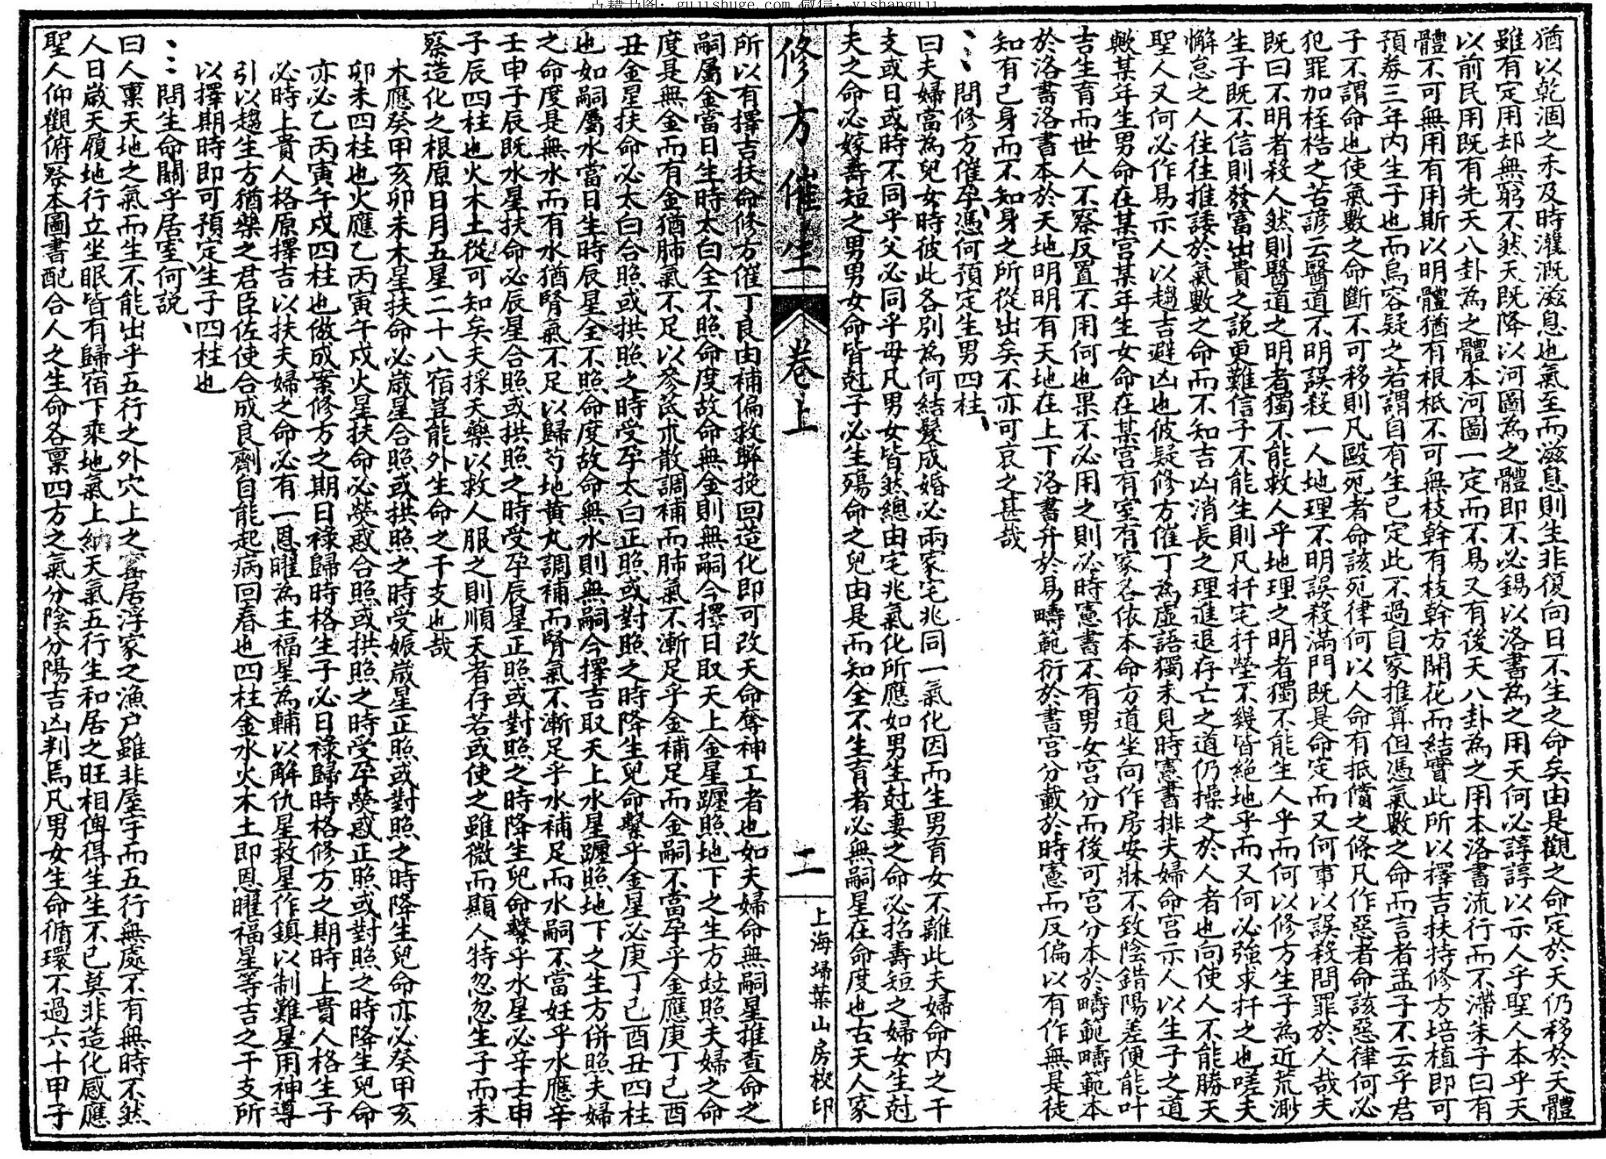 古籍书阁: gujishuge.com 微信: yishanguji
猶以乾涸之禾及時灌溉滋息也氣至而滋息則生非復向日不生之命矣由是觀之命定於天仍移於天體
雖有定用却無窮不然天既降以河圖為之體即不必錫以洛書為之用天何必諄諄以示人乎聖人本乎天
以前民用既有先天八卦為之體本河圖一定而不易又有後天八卦為之用本洛書流行而不滯朱子曰有
體不可無用有用斯以明體猶有根柢不可無枝幹有枝幹方開花而結實此所以擇吉扶持修方培植即可
預券三年內生子也而烏容疑之若謂自有生已定此不過自家推算但憑氣數之命而言者孟子不云乎君
子不謂命也使氣數之命斷不可移則凡毆死者命該死律何以人命有抵償之條凡作惡者命該惡律何必
犯罪加桎梏之苦諺云醫道不明誤殺一人地理不明誤殺滿門既是命定而又何事以誤殺問罪於人哉夫
既曰不明者殺人然則醫道之明者獨不能救人乎地理之明者獨不能生人乎而何以修方生子為近荒渺
生子既不信則發富出貴之說更難信子不能生則凡扦宅扦塋不幾皆絕地乎而又何必強求扦之也嗟夫
懈怠之人往往推諉於氣數之命而不知吉凶消長之理進退存亡之道仍操之於人者也向使人不能勝天
聖人又何必作易示人以趨吉避凶也彼疑修方催丁為虛語獨未見時憲書排夫婦命宮示人以生子之道
歟某年生男命在某宮某年生女命在某宮有室有家各依本命方道坐向作房安牀不致陰錯陽差便能叶
吉生育而世人不察反置不用何也果不必用之則必時憲書不有男女宮分而後可宮分本於疇範疇範本
於洛書洛書本於天地明明有天地在上下洛書升於易疇範衍於書宮分載於時憲而反偏以有作無是徒
知有己身而不知身之所從出矣不亦可哀之甚哉
問修方催孕憑何預定生男四柱
曰夫婦當為兒女時彼此各別為何結髮成婚必兩家宅兆同一氣化因而生男育女不離此夫婦命內之干
支或日或時不同乎父必同乎母凡男女皆然總由宅兆氣化所應如男生尅妻之命必招壽短之婦女生尅
夫之命必嫁壽短之男男女命皆尅子必生殤命之兒由是而知全不生育者必無嗣星在命度也古天人家
修方催生
卷上
二
上海埽葉山房校印
所以有擇吉扶命修方催丁良由補偏救弊挽回造化即可改天命奪神工者也如夫婦命無嗣星推查命之
嗣屬金當日生時太白全不照命度故命無金則無嗣今擇日取天上金星躔照地下之生方歧照夫婦之命
度是無金而有金猶肺氣不足以參芪朮散調補而肺氣不漸足乎金補足而金嗣不當孕乎金應庚丁己酉
丑金星扶命必太白合照或拱照之時受孕太白正照或對照之時降生兒命繫乎金星必庚丁己酉丑四柱
也如嗣屬水當日生時辰星全不照命度故命無水則無嗣今擇吉取天上水星躔照地下之生方併照夫婦
之命度是無水而有水猶腎氣不足以歸芍地黄丸調補而腎氣不漸足乎水補足而水嗣不當妊乎水應辛
壬申子辰既水星扶命必辰星合照或拱照之時受孕辰星正照或對照之時降生兒命繫乎水星必辛壬申
子辰四柱也火木土從可知矣夫採天藥以救人服之則順天者存若或使之雖微而顯人特忽忽生子而未
察造化之根原日月五星二十八宿豈能外生命之干支也哉
木應癸甲亥卯未木星扶命必歲星合照或拱照之時受娠歲星正照或對照之時降生兒命亦必癸甲亥
卯未四柱也火應乙丙寅午戌火星扶命必熒惑合照或拱照之時受孕熒惑正照或對照之時降生兒命
亦必乙丙寅午戌四柱也倣成案修方之期日祿歸時格生子必日祿歸時格修方之期時上貴人格生子
必時上貴人格原擇吉以扶夫婦之命必有一恩曜為主福星為輔以解仇星救星作鎮以制難星用神導
引以趨生方猶藥之君臣佐使合成良劑自能起病回春也四柱金水火木土即恩曜福星等吉之干支所
以擇期時即可預定生子四柱也
問生命關乎居室何說
曰人稟天地之氣而生不能出乎五行之外穴上之窰居浮家之漁户雖非屋宇而五行無處不有無時不然
人日歲天履地行立坐眠皆有歸宿下乘地氣上納天氣五行生和居之旺相俾得生生不已莫非造化感應
聖人仰觀俯察本圖書配合人之生命各稟四方之氣分陰分陽吉凶判焉凡男女生命循環不過六十甲子